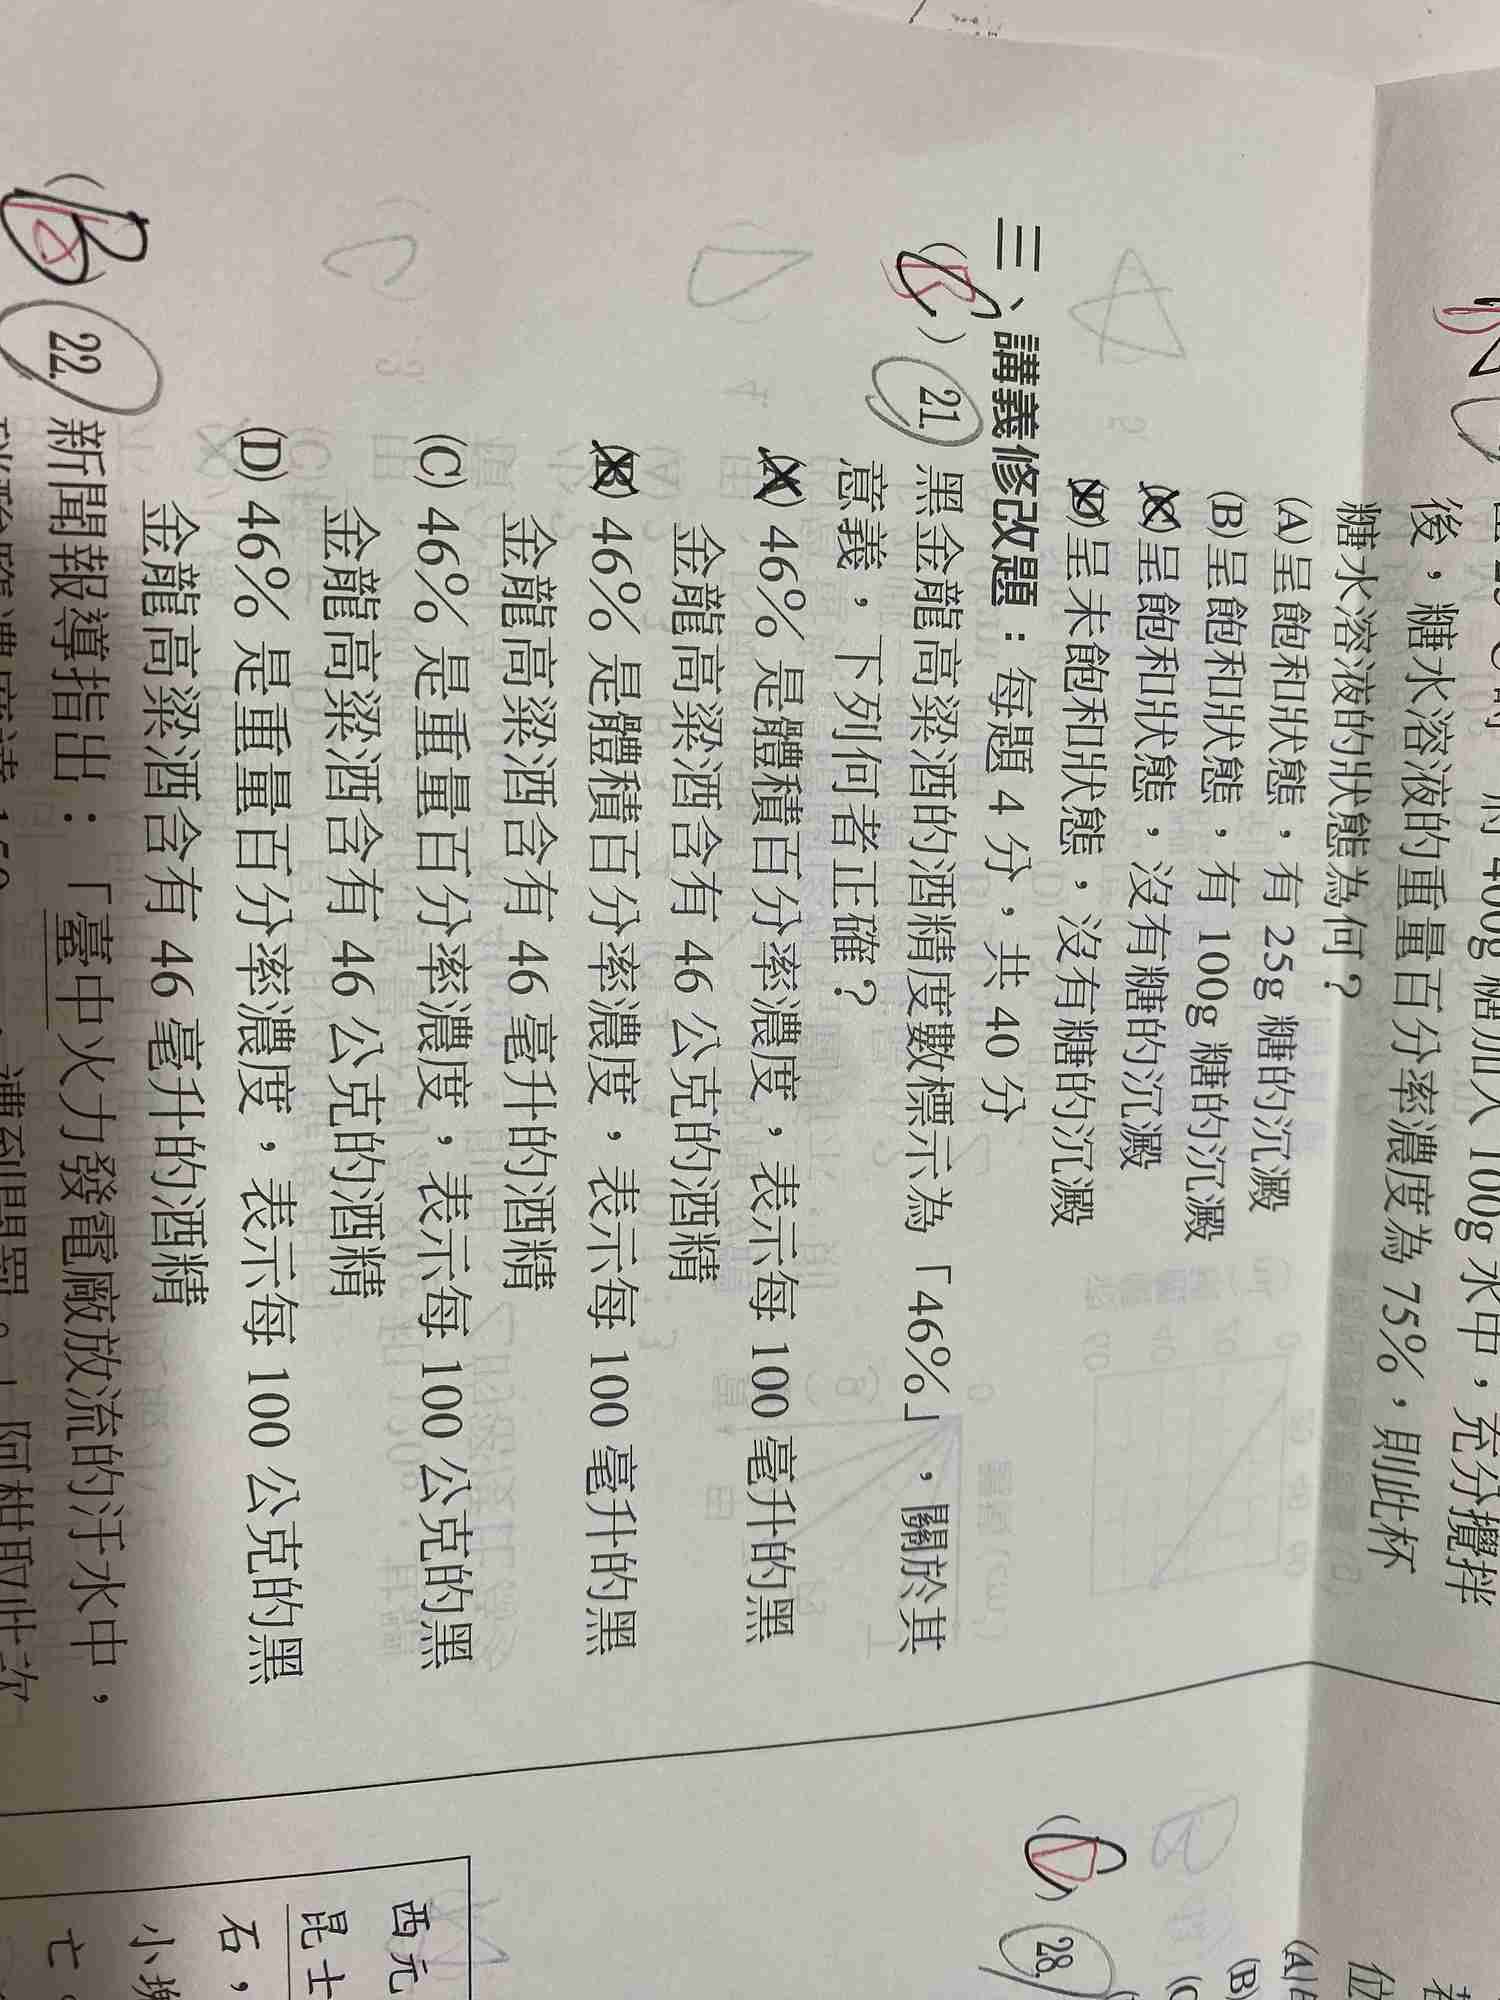 400g 糖加入 100g 水中，充分攪拌
後，糖水溶液的重量百分率濃度為 75%，則此杯
糖水溶液的狀態為何？
(A) 呈飽和狀態，有 25g 糖的沉澱
(B) 呈飽和狀態，有 100g 糖的沉澱
(C) 呈飽和狀態，沒有糖的沉澱
(D) 呈未飽和狀態，沒有糖的沉澱
三、講義修改題：每題 4 分，共 40 分
( B ) 21. 黑金龍高粱酒的酒精度數標示為「46%」，關於其
意義，下列何者正確？
(A) 46% 是體積百分率濃度，表示每 100 毫升的黑
金龍高粱酒含有 46 公克的酒精
(B) 46% 是體積百分率濃度，表示每 100 毫升的黑
金龍高粱酒含有 46 毫升的酒精
(C) 46% 是重量百分率濃度，表示每 100 公克的黑
金龍高粱酒含有 46 公克的酒精
(D) 46% 是重量百分率濃度，表示每 100 公克的黑
金龍高粱酒含有 46 毫升的酒精
( B ) 22. 新聞報導指出：「臺中火力發電廠放流的汙水中，
28.
(A)
(B)
西元
昆士
石，
小撮
亡。